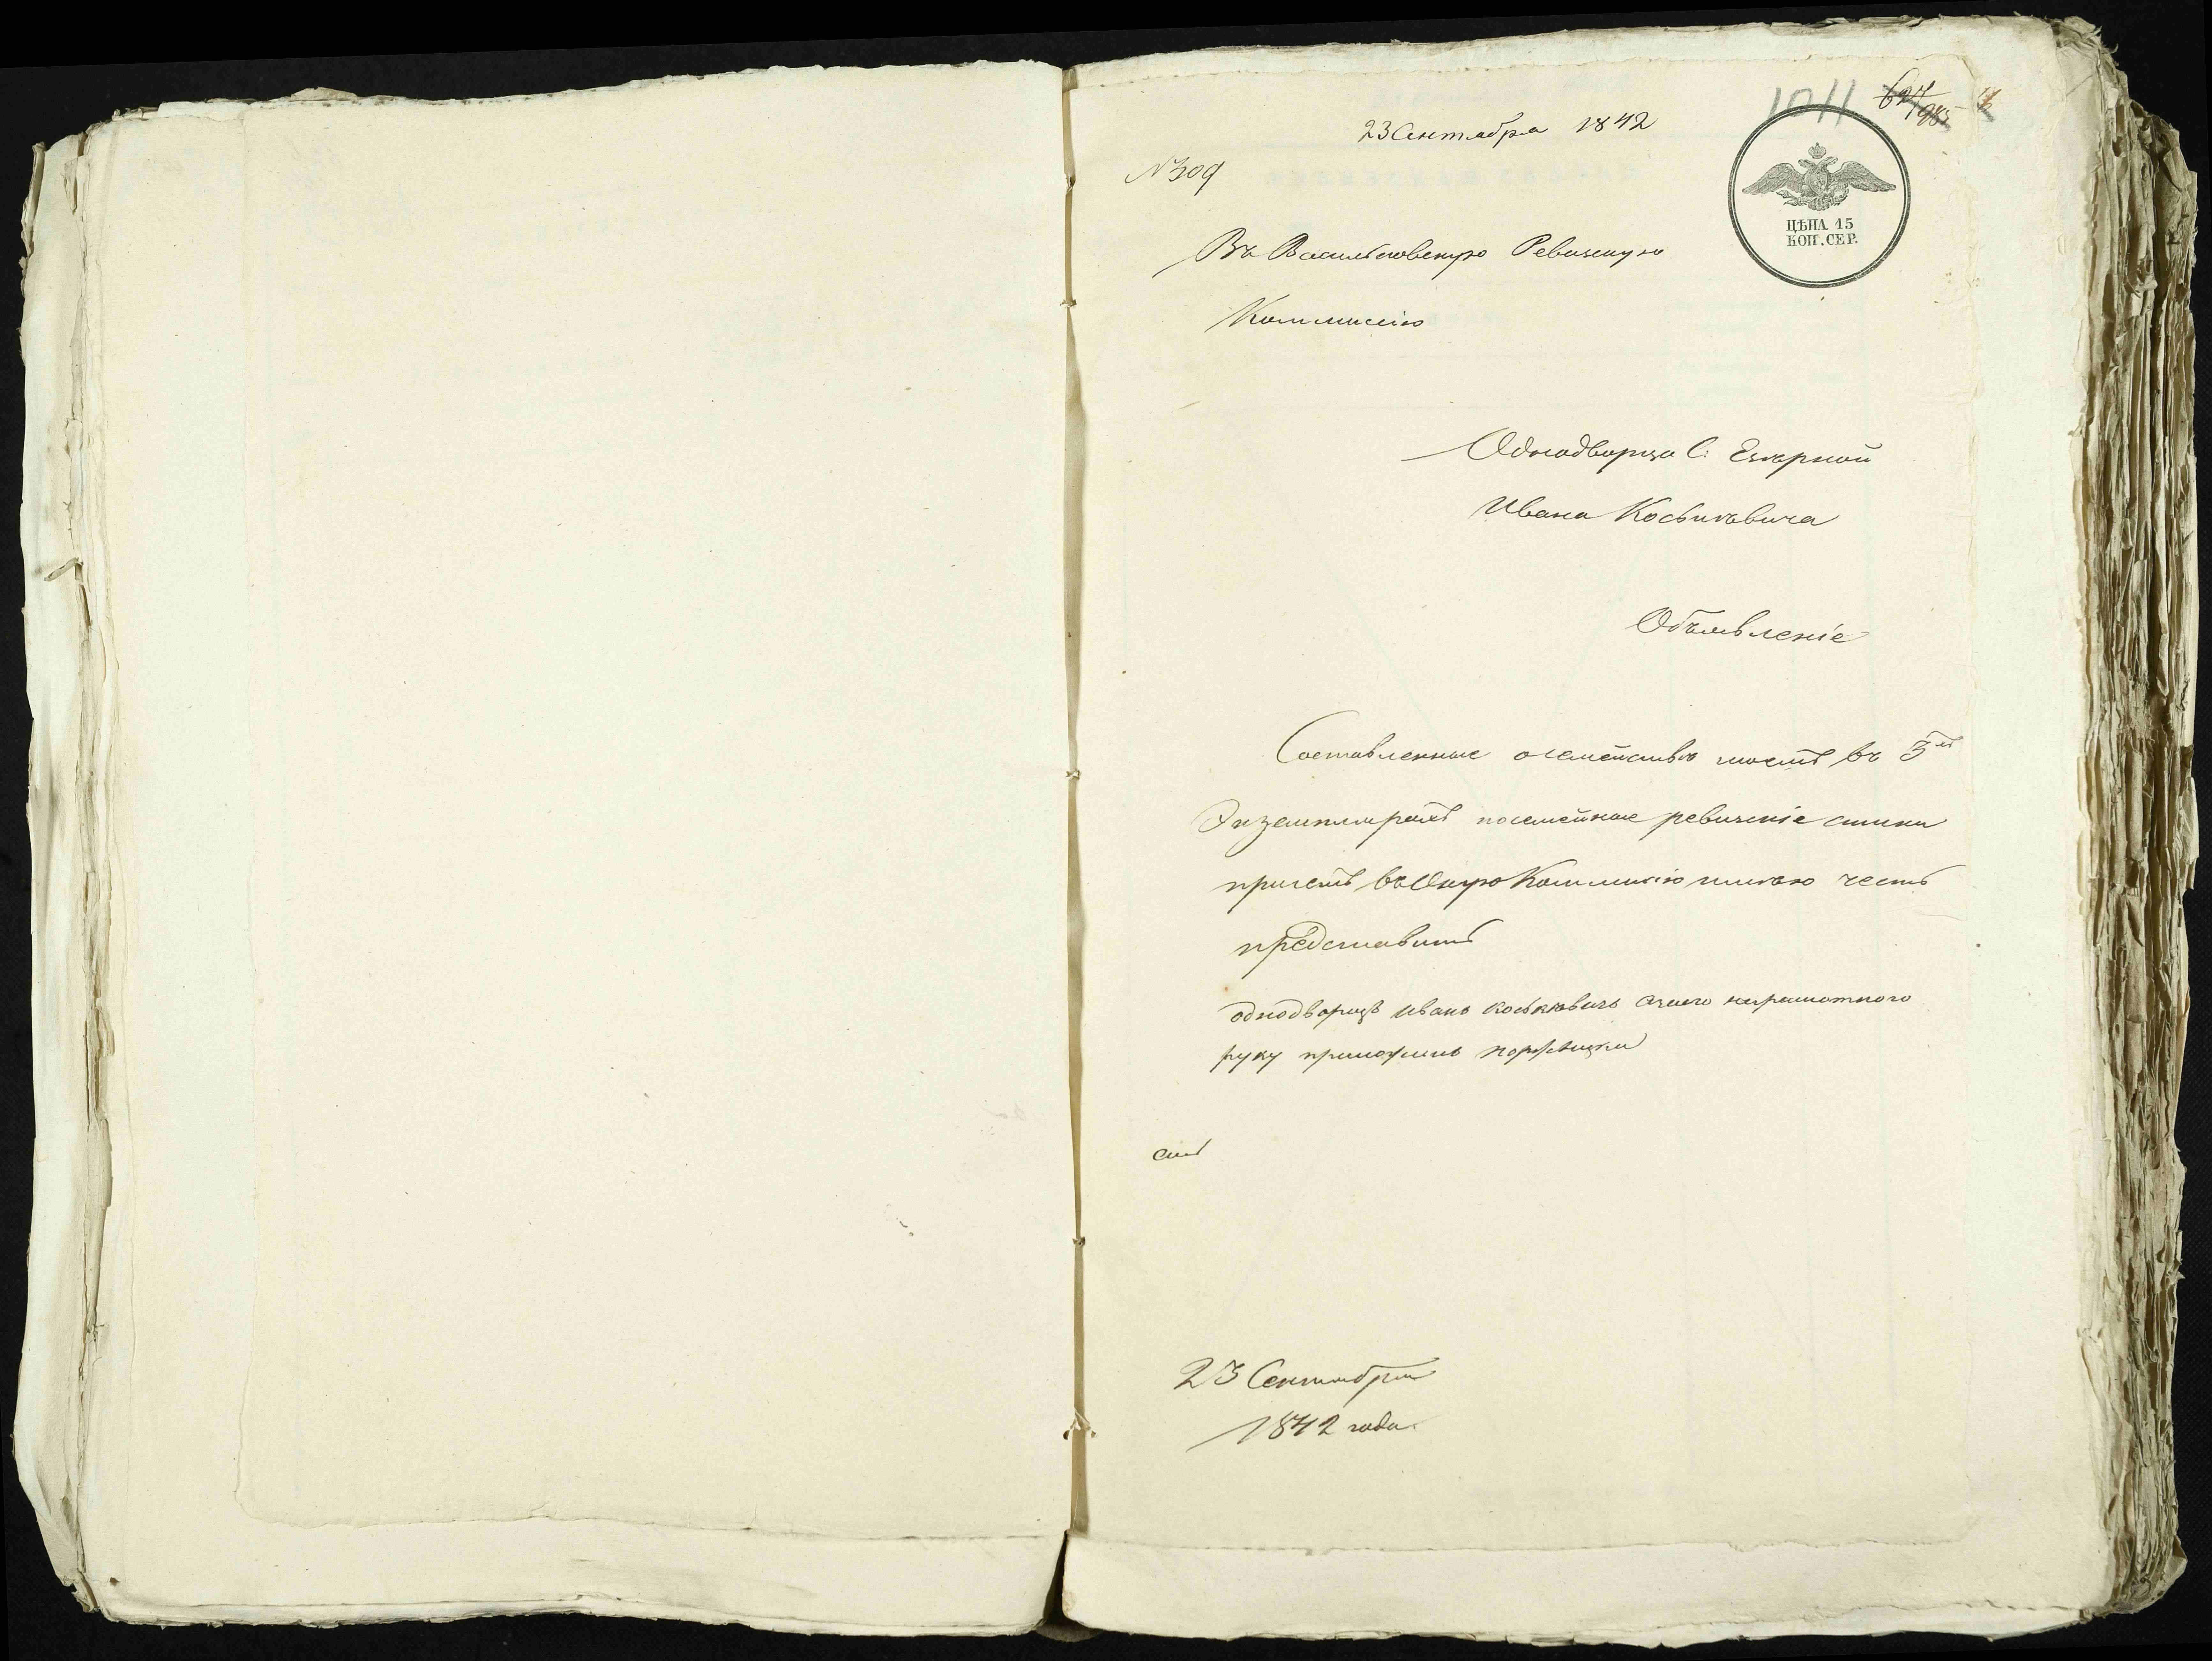 1011 627 985
23 Сентября 1842
№309
ЦѢНА 15
КОП. СЕР.
Въ Васильковскую Ревизскую
Коммисію
Однодворца С: Езерной
Ивана Коськовича
Объявленіе
Составленные о семействѣ моемъ въ 3хъ
Экземплярахъ посемейные ревизскіе списки
при семъ въ Оную Коммисію имѣю честь
представить
однодворецъ иванъ коськовичъ а за него неграмотного
руку приложилъ
23 Сентября
1842 года